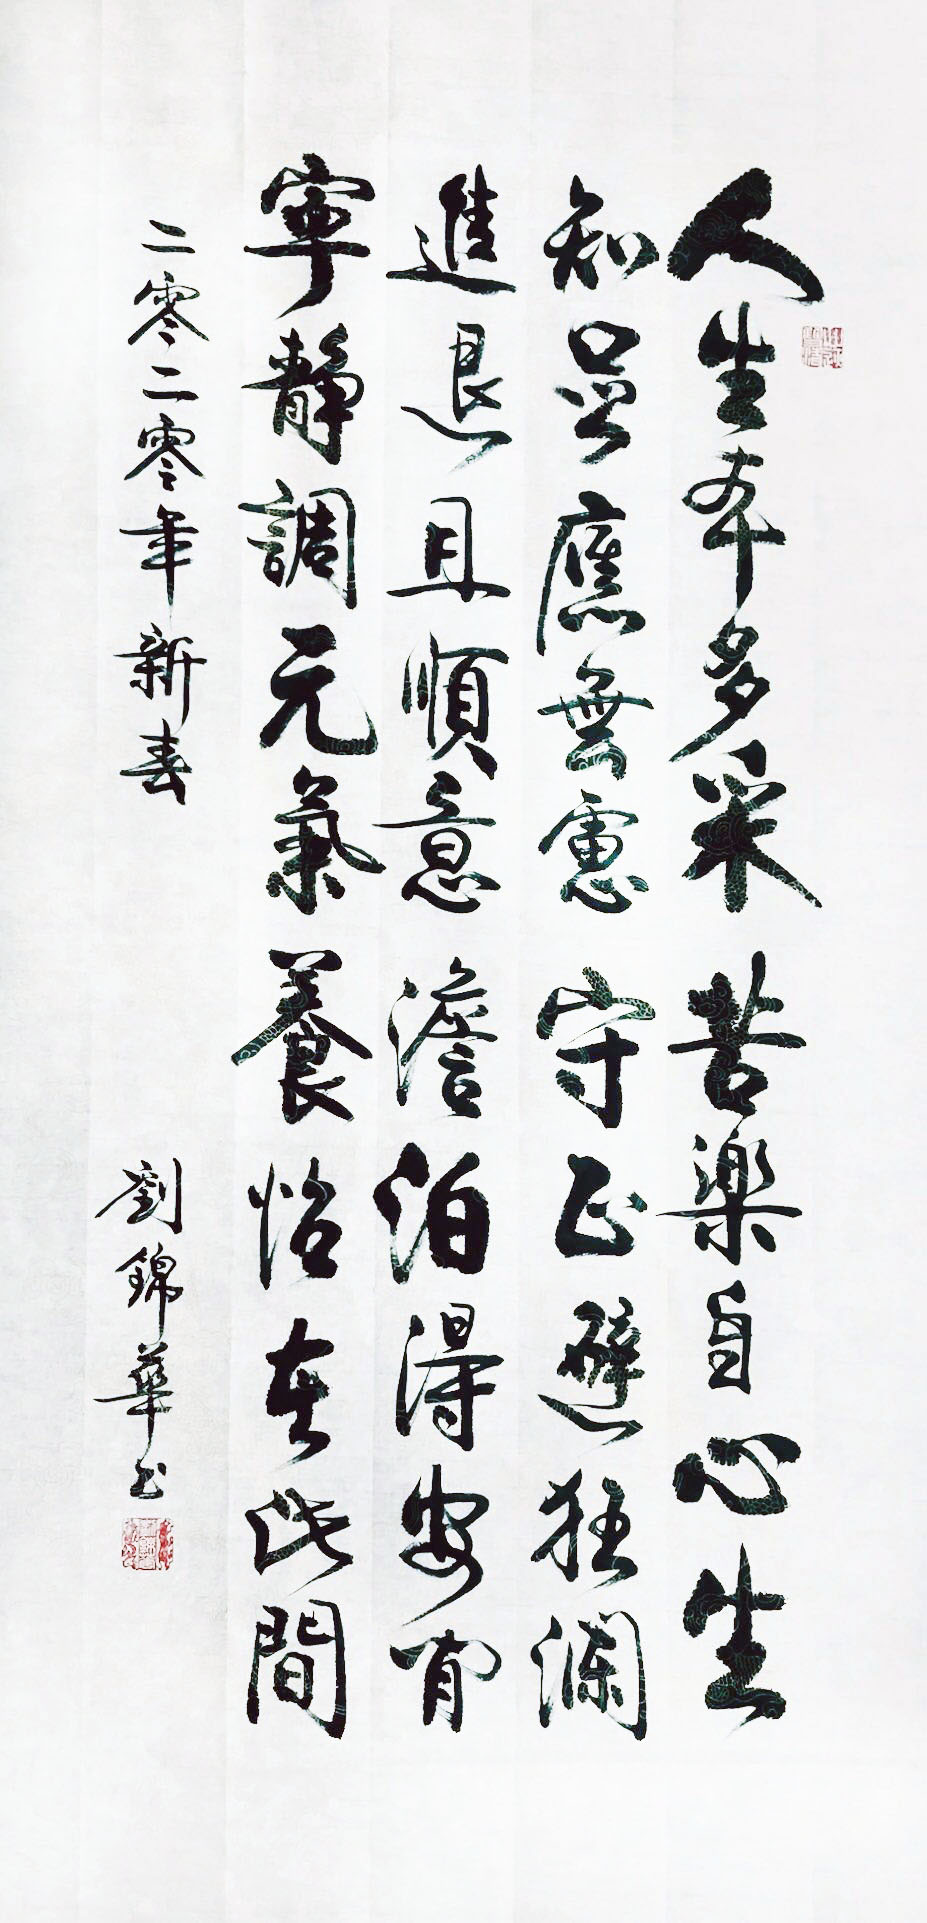 人生本多采苦樂自心生
知足應無慮守正避狂瀾
進退且順意澹泊得安閒
寧靜調元氣養怡在此間
二零二零年新春
劉錦華书